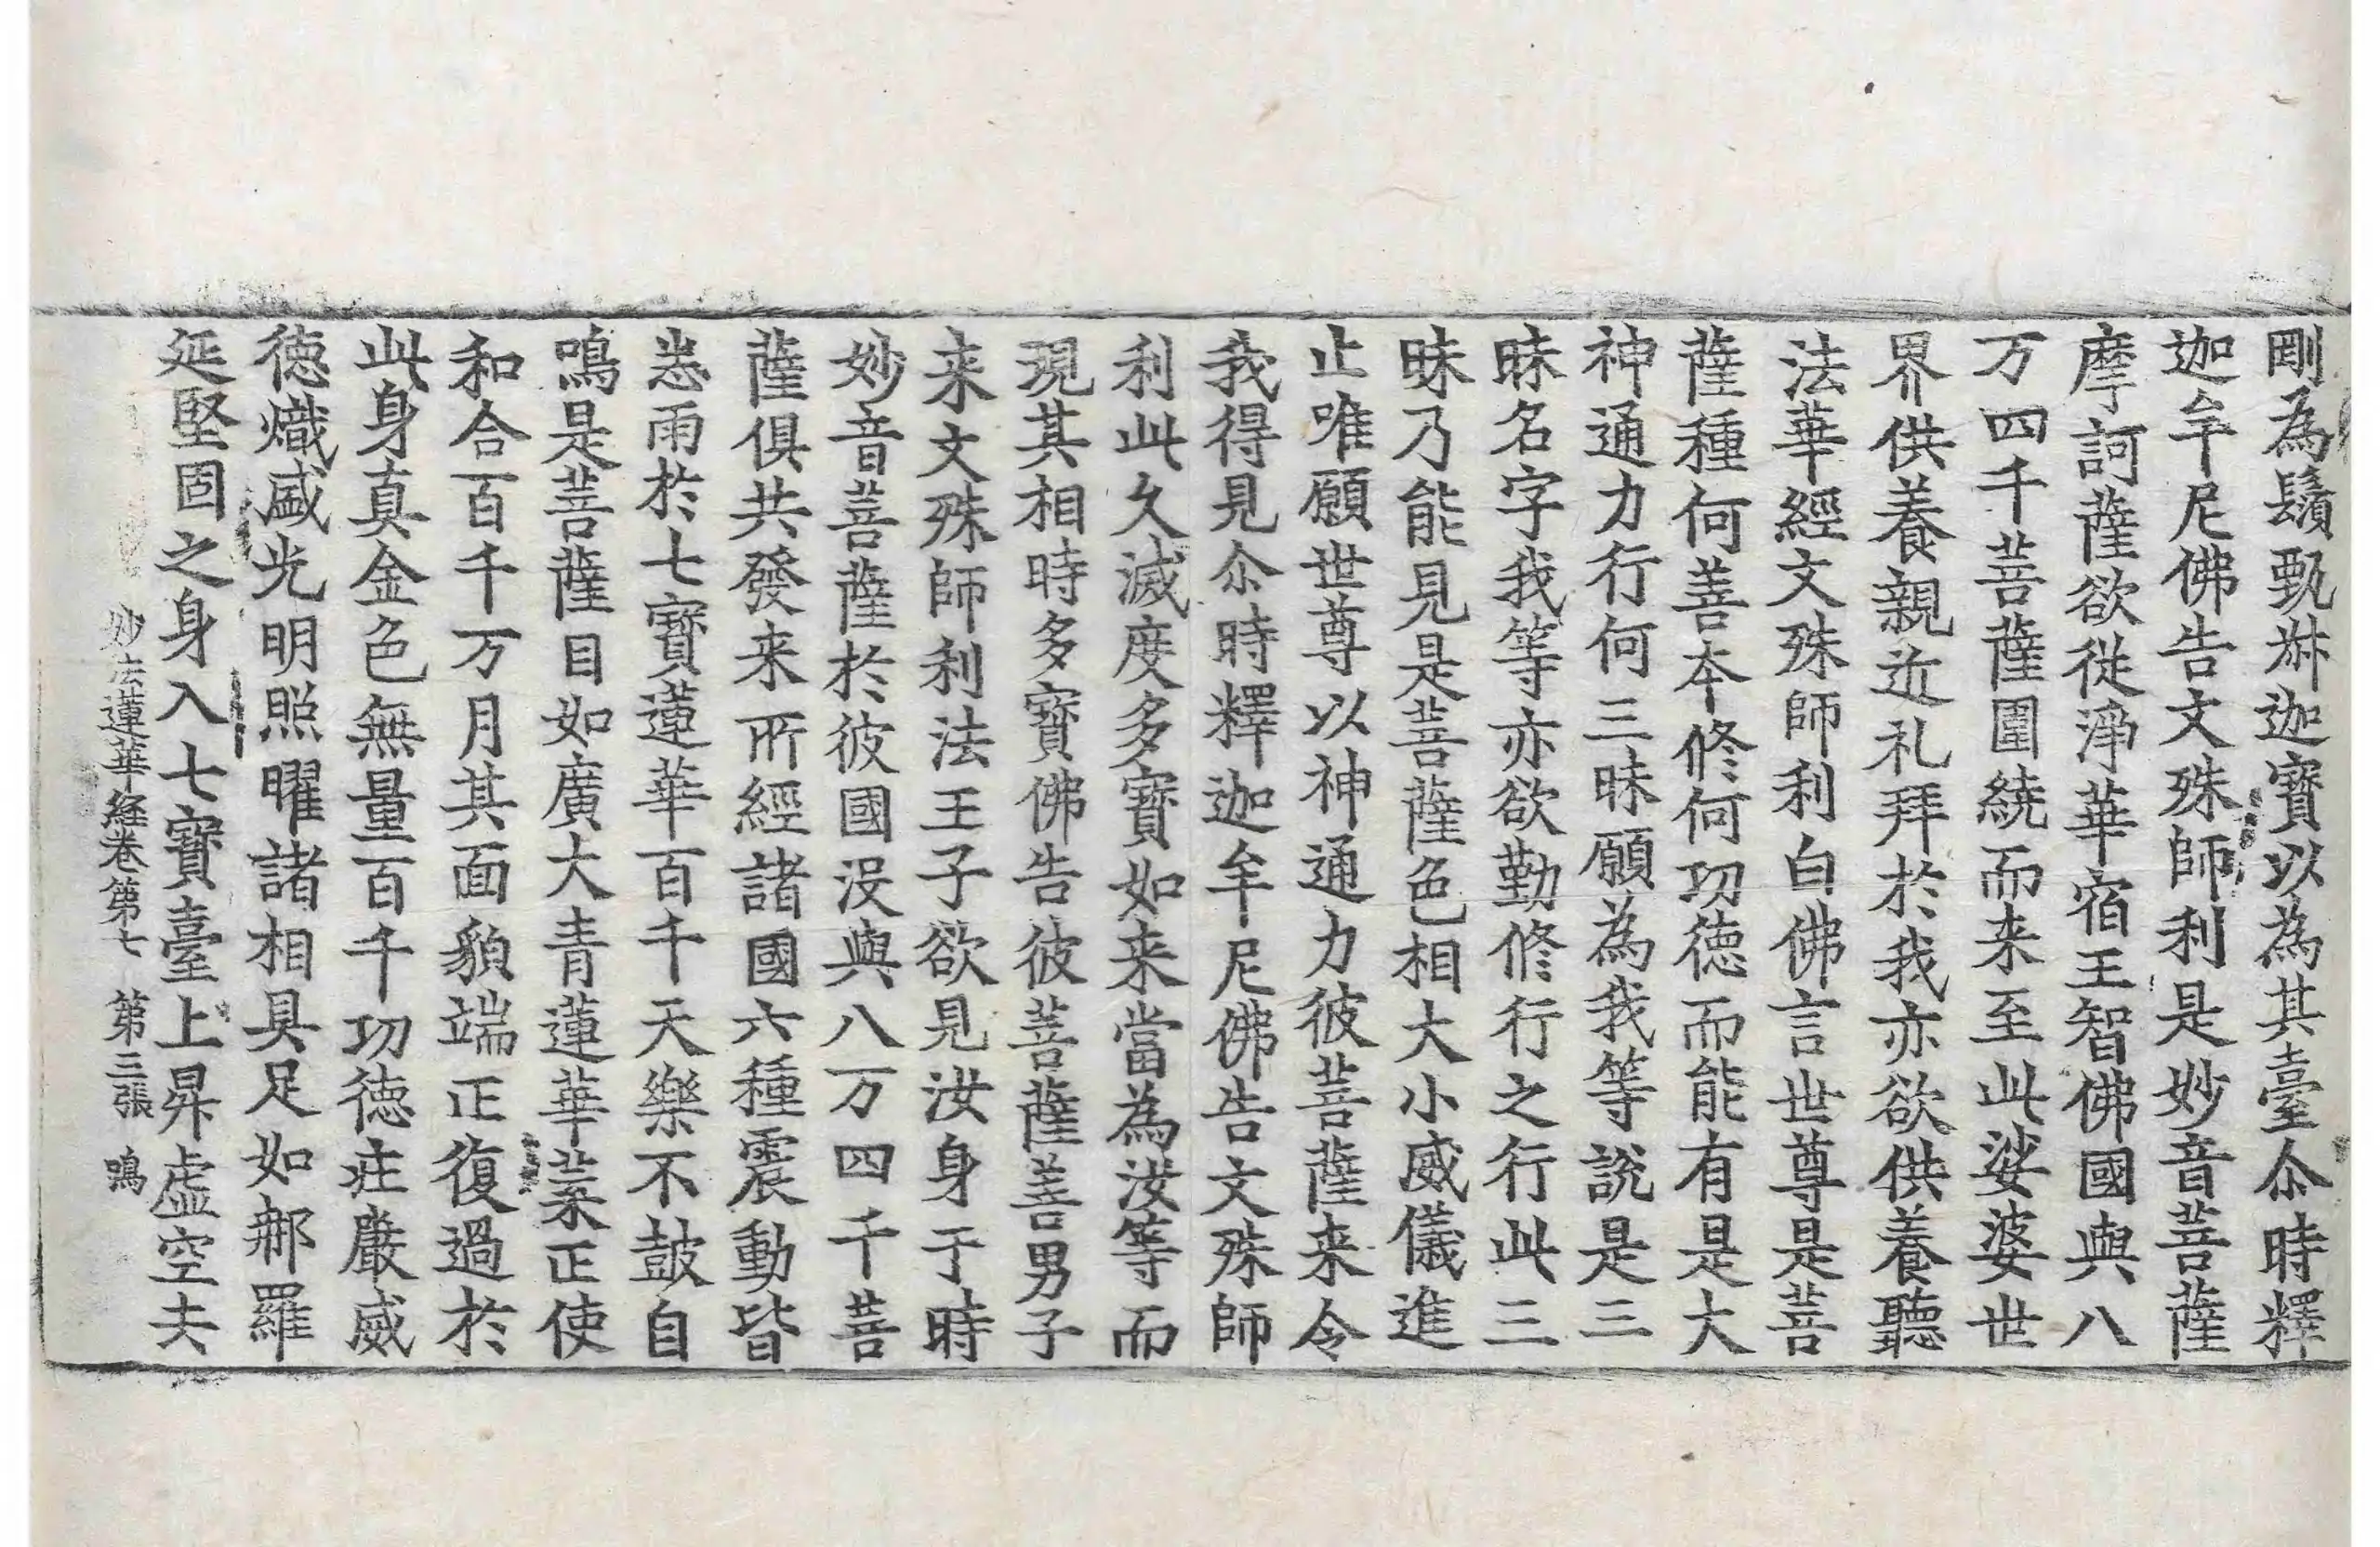 剛為鬚甄𭋩迦寶以為其臺尒時釋
迦牟尼佛告文殊師利是妙音菩薩
摩訶薩欲從淨華宿王智佛國與八
万四千菩薩圍繞而来至此娑婆世
界供養親近礼拜於我亦欲供養聽
法華經文殊師利白佛言世尊是菩
薩種何善本修何功德而能有是大
神通力行何三昧願為我等說是三
昧名字我等亦欲勤修行之行此三
昧乃能見是菩薩色相大小威儀進
止唯願世尊以神通力彼菩薩来令
我得見尒時釋迦牟尼佛告文殊師
利此久滅度多寶如来當為汝等而
現其相時多寶佛告彼菩薩善男子
来文殊師利法王子欲見汝身于時
妙音菩薩於彼國沒與八万四千菩
薩俱共發来所經諸國六種震動皆
悉雨於七寶蓮華百千天樂不鼓自
鳴是菩薩目如廣大青蓮華葉正使
和合百千万月其面貌端正復過於
此身真金色無量百千功德莊嚴威
德熾盛光明照曜諸相具足如那羅
延堅固之身入七寶臺上昇虛空去
妙法蓮華経卷第七 第三張 鳴